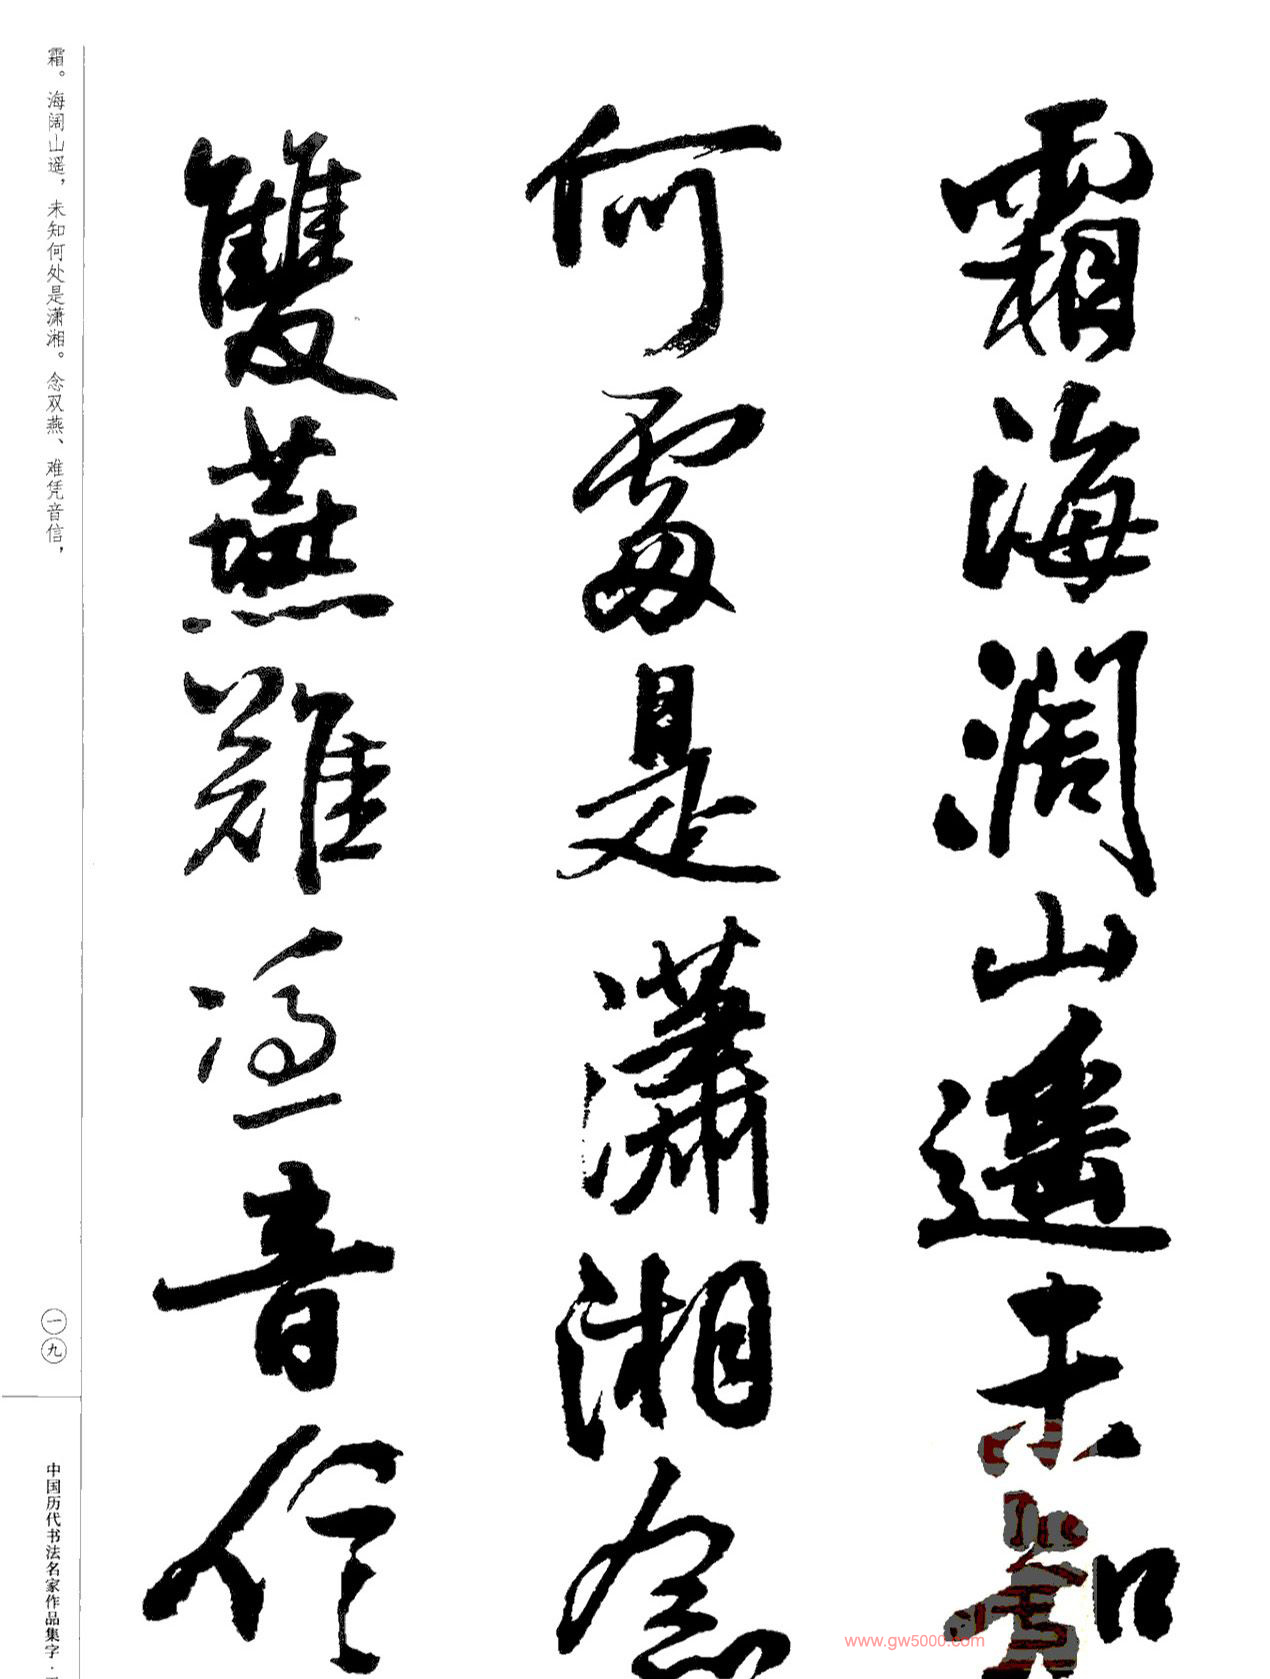 霜海闊山遥未知
何處是瀟湘念
雙燕難憑音信
霜。海阔山遥，未知何处是潇湘。念双燕、难凭音信，
一九
中国历代书法名家作品集字·
www.gw5000.com